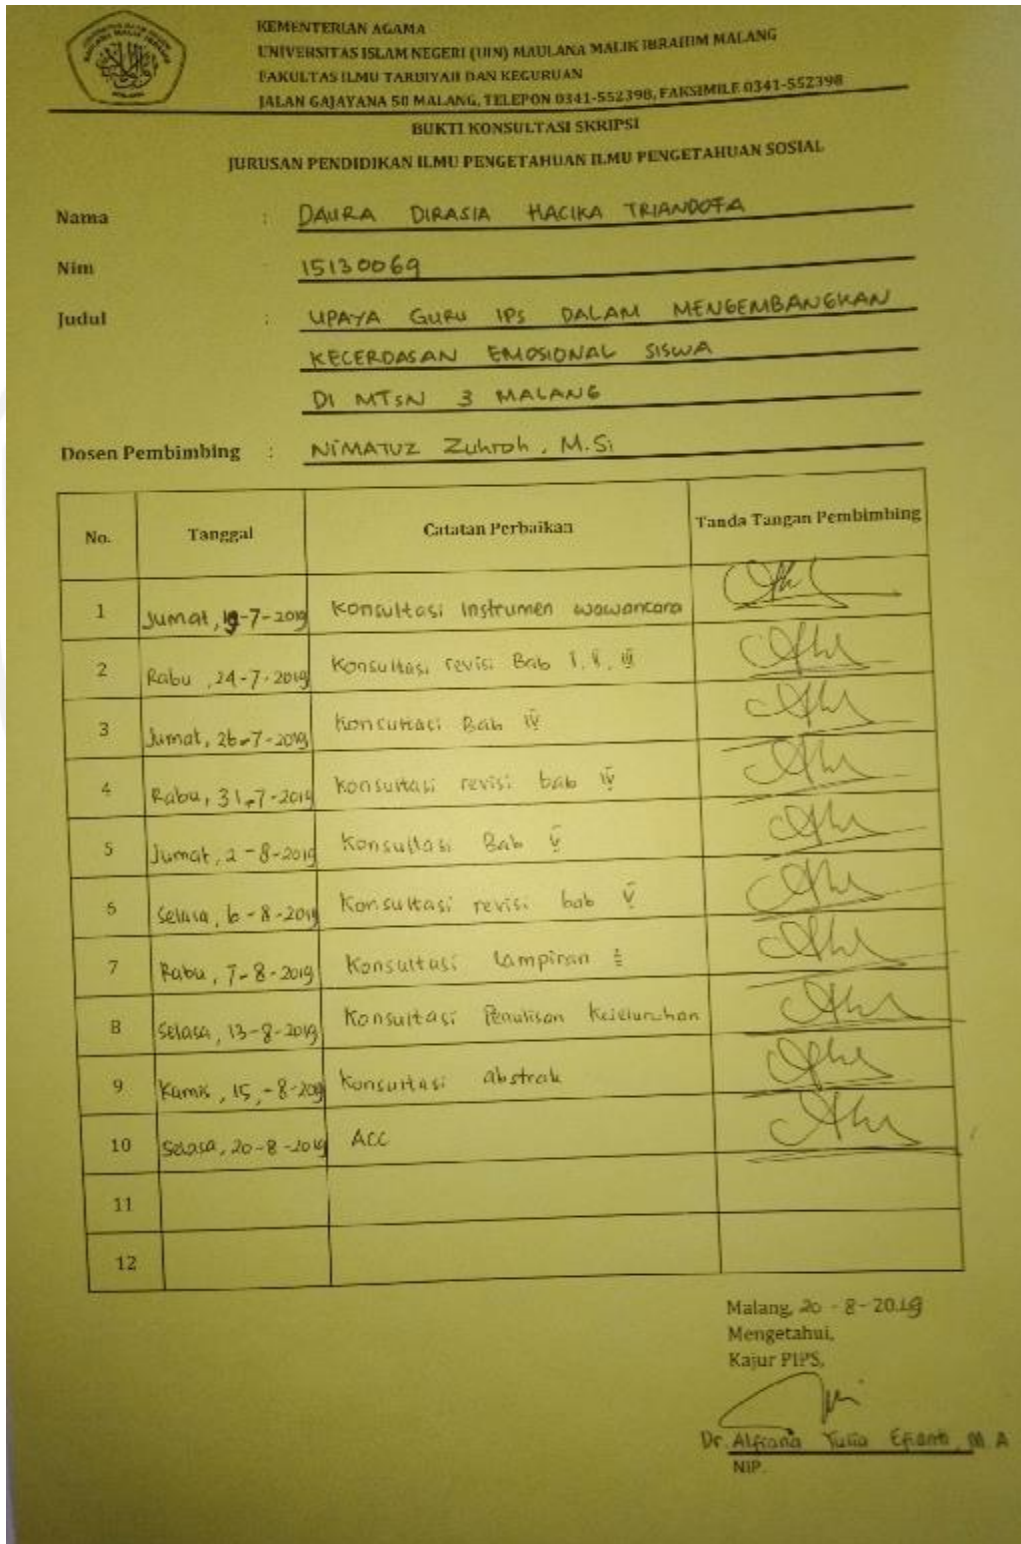 KEMENTERIAN AGAMA
UNIVERSITAS ISLAM NEGERI (UIN) MAULANA MALIK IBRAHIM MALANG
FAKULTAS ILMU TARBIYAH DAN KEGURUAN
JALAN GAJAYANA 50 MALANG, TELEPON 0341-552398, FAKSIMILE 0341-552398
BUKTI KONSULTASI SKRIPSI
JURUSAN PENDIDIKAN ILMU PENGETAHUAN ILMU PENGETAHUAN SOSIAL
Nama : DAURA DIRASIA HACIKA TRIANDOFA
Nim : 15130069
Judul : UPAYA GURU IPS DALAM MENGEMBANGKAN
KECERDASAN EMOSIONAL SISWA
DI MTsN 3 MALANG
Dosen Pembimbing : NIMATUZ Zuhroh, M.Si
No. Tanggal Catatan Perbaikan Tanda Tangan Pembimbing
1 Jumat, 19-7-2019 Konsultasi Instrumen wawancara
2 Rabu, 24-7-2019 Konsultasi revisi Bab I, II, III
3 Jumat, 26-7-2019 Konsultasi Bab IV
4 Rabu, 31-7-2019 Konsultasi revisi bab IV
5 Jumat, 2-8-2019 Konsultasi Bab V
6 Selasa, 6-8-2019 Konsultasi revisi bab V
7 Rabu, 7-8-2019 Konsultasi Lampiran
8 Selasa, 13-8-2019 Konsultasi Penulisan Keseluruhan
9 Kamis, 15,-8-2019 Konsultasi abstrak
10 Selasa, 20-8-2019 ACC
11
12
Malang, 20-8-2019
Mengetahui,
Kajur PIPS,
Dr. Alfiana Yulia Efianti, M.A
NIP.